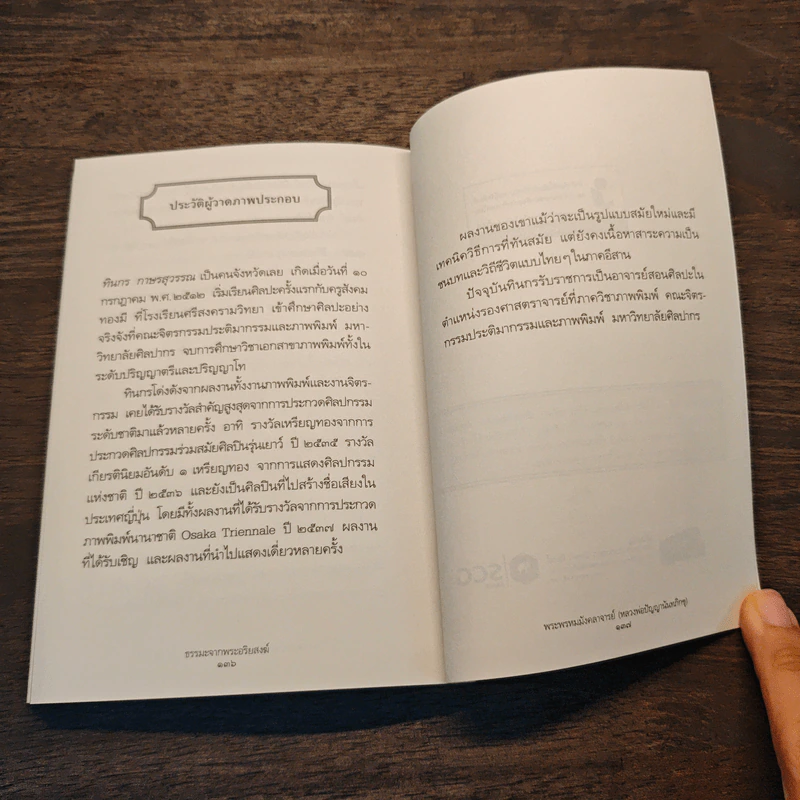 ประวัติผู้วาดภาพประกอบ
ทินกร กาษรสุวรรณ เป็นคนจังหวัดเลย เกิดเมื่อวันที่ ๑๐
กรกฎาคม พ.ศ.๒๕๑๒ เริ่มเรียนศิลปะครั้งแรกกับครูสังคม
ทองมี ที่โรงเรียนศรีสงครามวิทยา เข้าศึกษาศิลปะอย่าง
จริงจังที่คณะจิตรกรรมประติมากรรมและภาพพิมพ์ มหา-
วิทยาลัยศิลปากร จบการศึกษาวิชาเอกสาขาภาพพิมพ์ทั้งใน
ระดับปริญญาตรีและปริญญาโท
ทินกรโด่งดังจากผลงานทั้งงานภาพพิมพ์และงานจิตร-
กรรม เคยได้รับรางวัลสำคัญสูงสุดจากการประกวดศิลปกรรม
ระดับชาติมาแล้วหลายครั้ง อาทิ รางวัลเหรียญทองจากการ
ประกวดศิลปกรรมร่วมสมัยศิลปินรุ่นเยาว์ ปี ๒๕๓๕ รางวัล
เกียรตินิยมอันดับ ๑ เหรียญทอง จากการแสดงศิลปกรรม
แห่งชาติ ปี ๒๕๓๖ และยังเป็นศิลปินที่ไปสร้างชื่อเสียงใน
ประเทศญี่ปุ่น โดยมีทั้งผลงานที่ได้รับรางวัลจากการประกวด
ภาพพิมพ์นานาชาติ Osaka Triennale ปี ๒๕๓๗ ผลงาน
ที่ได้รับเชิญ และผลงานที่นำไปแสดงเดี่ยวหลายครั้ง
ธรรมะจากพระอริยสงฆ์
๑๓๖
ผลงานของเขาแม้ว่าจะเป็นรูปแบบสมัยใหม่และมี
เทคนิควิธีการที่ทันสมัย แต่ยังคงเนื้อหาสาระความเป็น
ชนบทและวิถีชีวิตแบบไทยๆในภาคอีสาน
ปัจจุบันทินกรรับราชการเป็นอาจารย์สอนศิลปะใน
ตำแหน่งรองศาสตราจารย์ที่ภาควิชาภาพพิมพ์ คณะจิตร-
กรรมประติมากรรมและภาพพิมพ์ มหาวิทยาลัยศิลปากร
พระพรหมมังคลาจารย์ (หลวงพ่อปัญญานันทภิกขุ)
๑๓๗